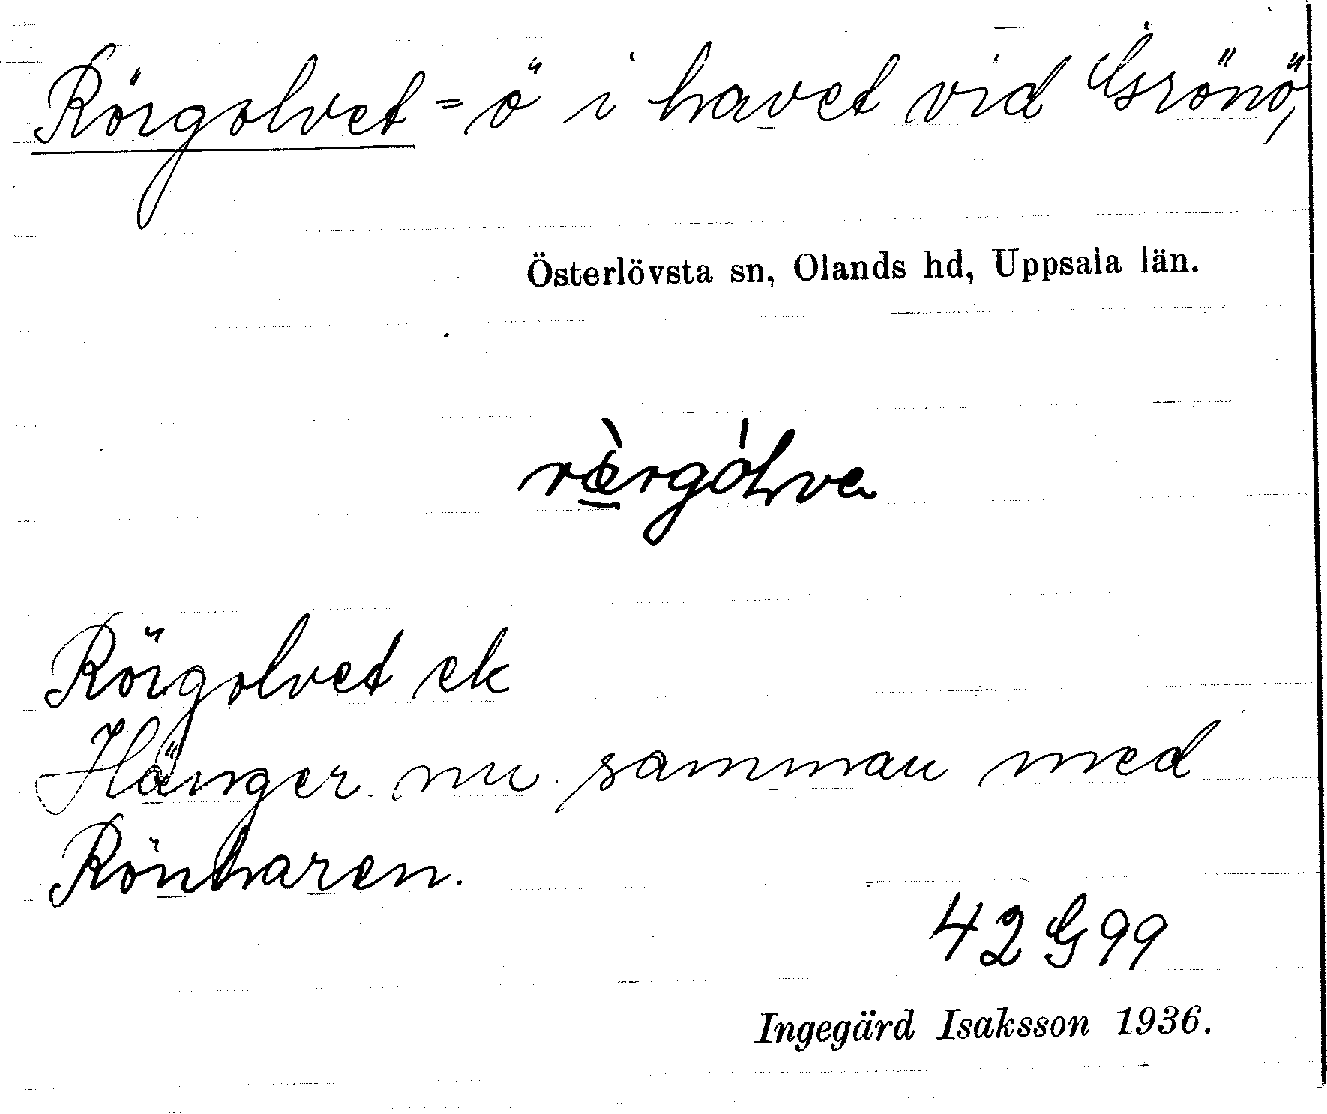 Rörgolvet = ö i havet vid Grönö,
Österlövsta sn, Olands hd, Uppsala län.
Rörgolvet ek
Hänger nu samman med
Rönharen.
42 G 99
Ingegärd Isaksson 1936.